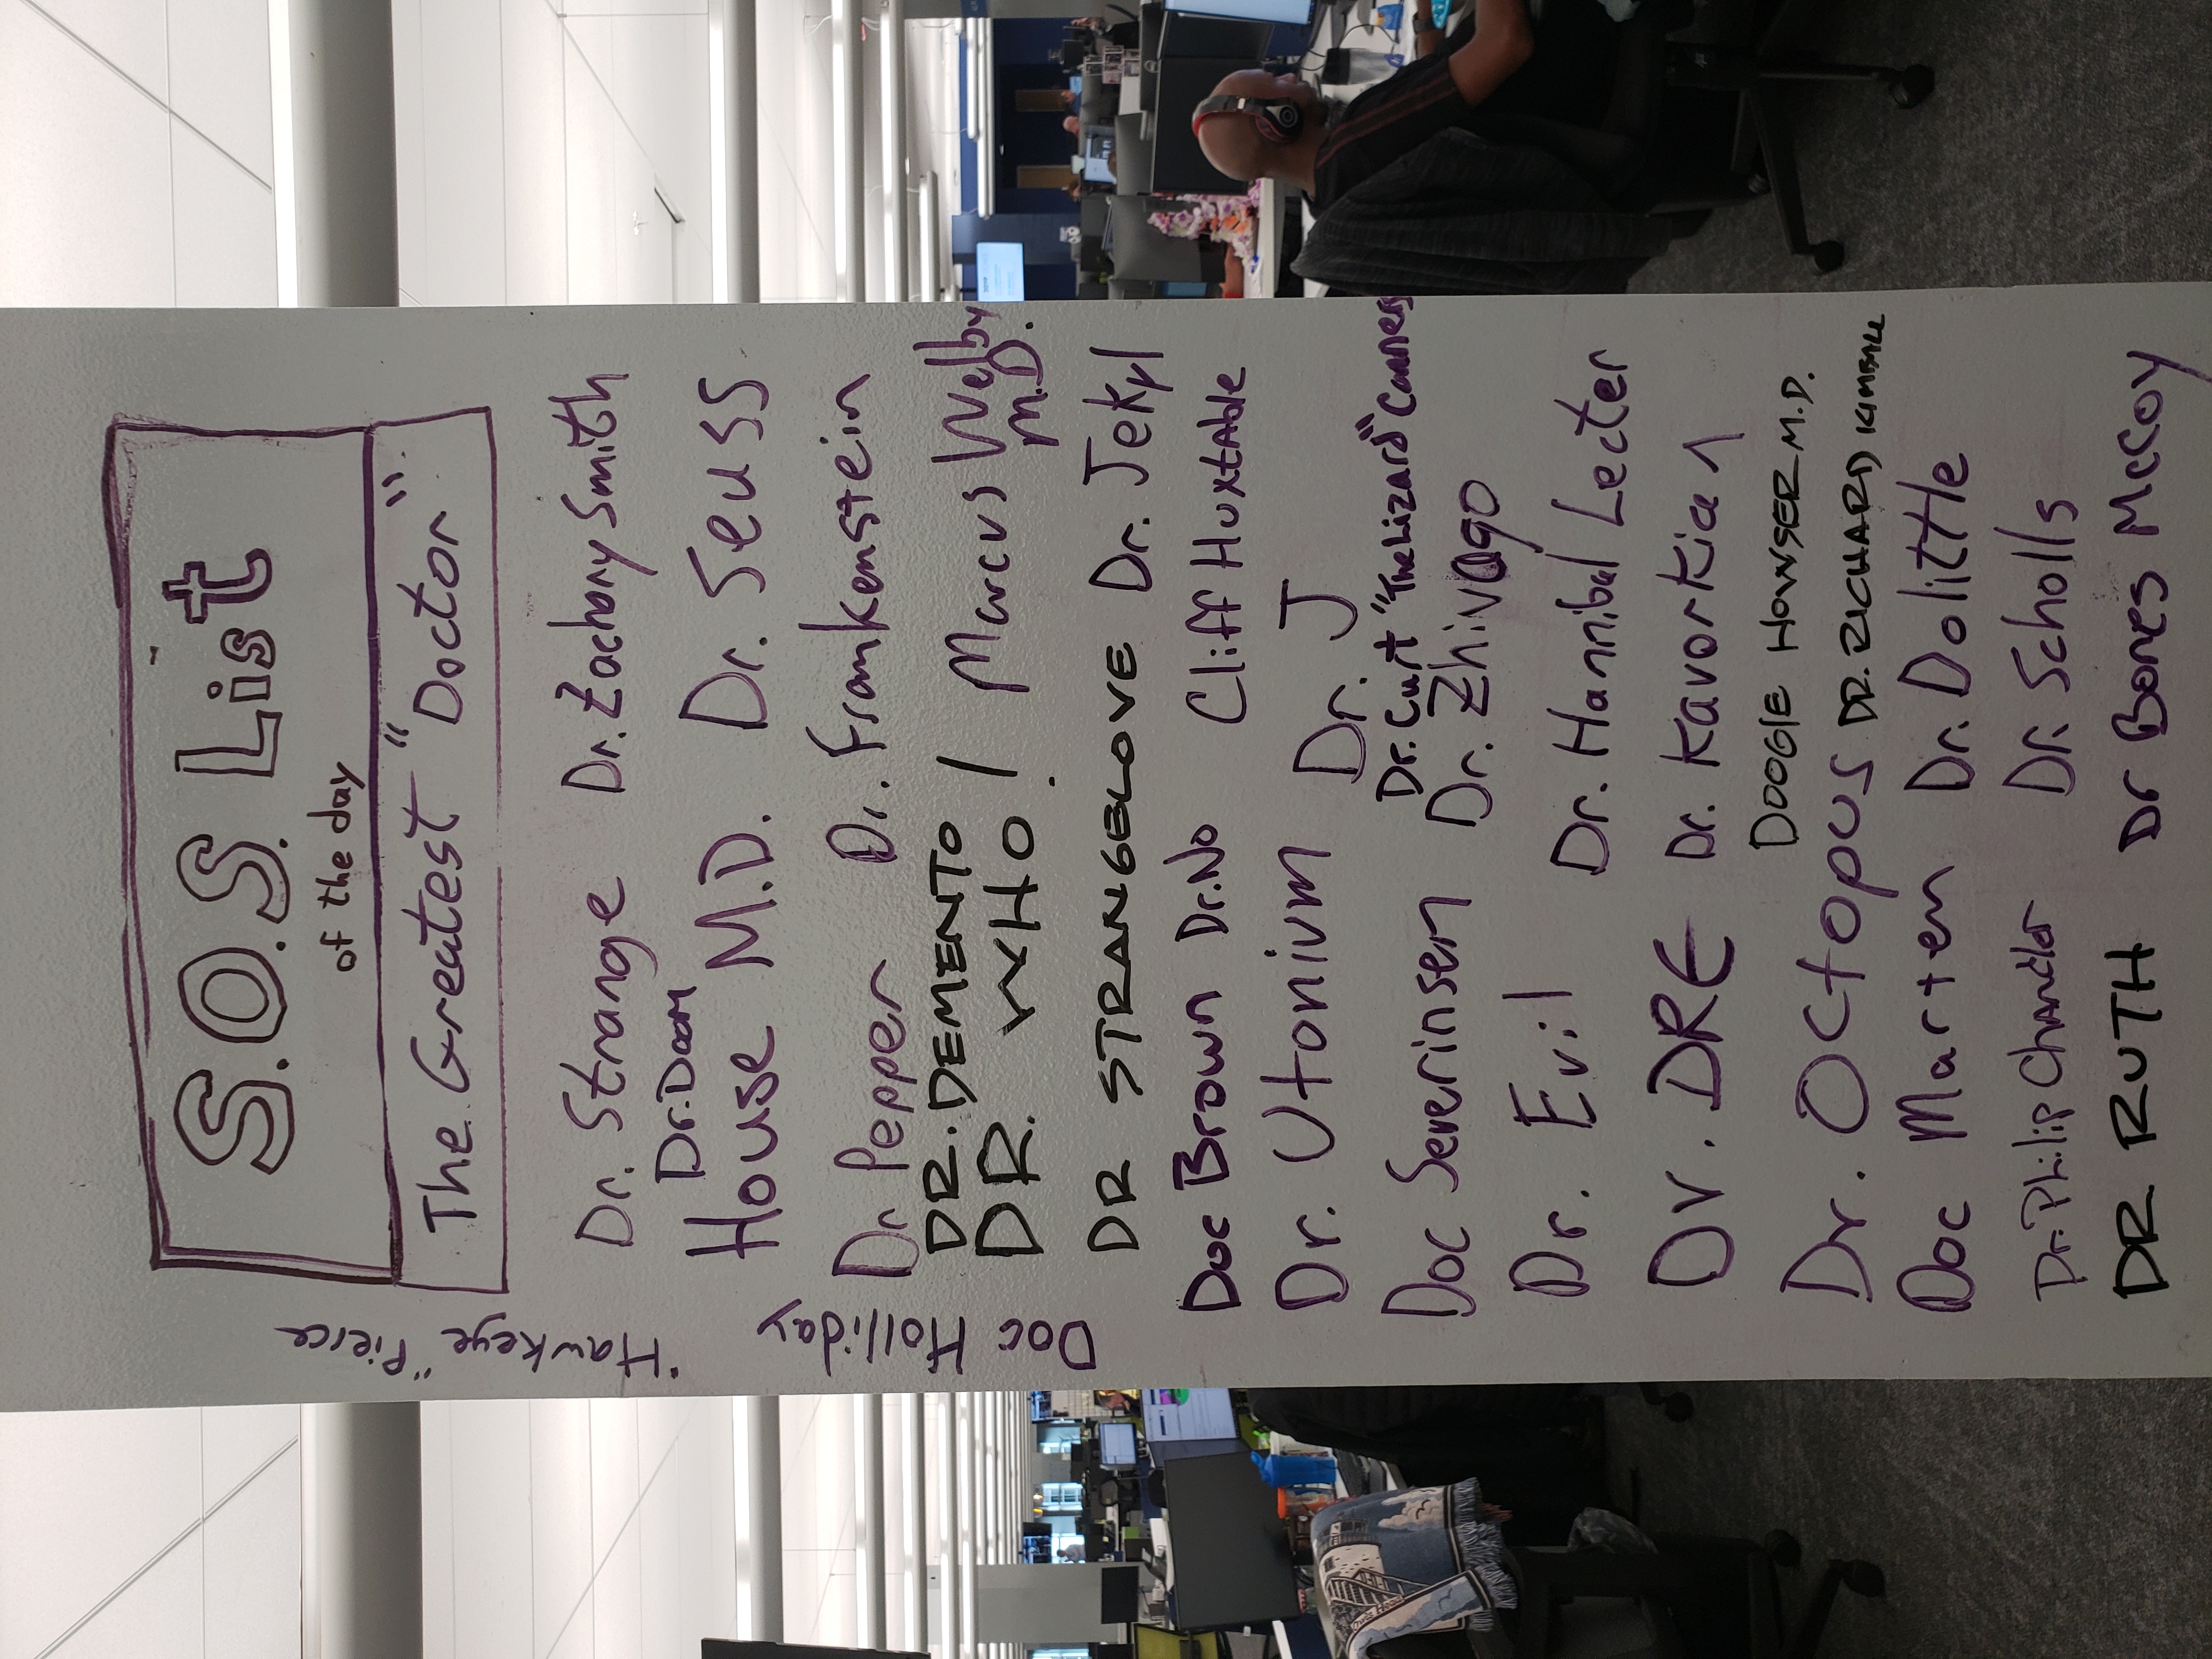 S.O.S. List
of the day
The Greatest "Doctor"
"Hawkeye" Pierce
Doc Holliday
Dr. Strange
Dr. Zachary Smith
Dr. Doom
House M.D.
Dr. Seuss
Dr Pepper
Dr. Frankenstein
DR. DEMENTO
DR. WHO!
Marcus Welby
M.D.
DR STRANGELOVE
Dr. Jekyl
Doc Brown
Dr. No
Cliff Huxtable
Dr. Utonium
Dr. J
Dr. Curt "The Lizard" Conners
Doc Severinsen
Dr. Zhivago
Dr. Evil
Dr. Hannibal Lecter
Dr. DRE
Dr. Kavorkian
DOOGIE HOWSER M.D.
Dr. Octopus
DR. RICHARD KIMBALL
Doc Marten
Dr. Dolittle
Dr. Philip Chandler
Dr. Scholls
DR RUTH
Dr Bones McCoy